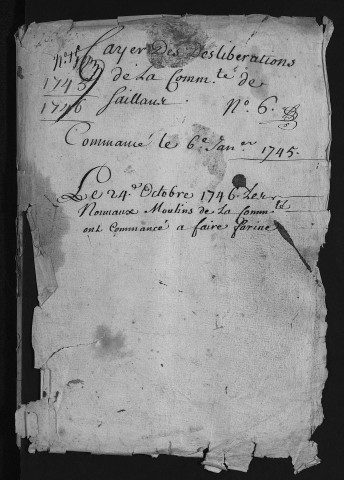 Cayer Des Desliberations
1745 de La Comm.té de
1746 Saillans. N.o 6.
Commancé le 6.e Jan.er 1745.
Le 24.e Octobre 1746. Les
Nouveaux Moulins de La Comm.té
ont Commancé a faire farine